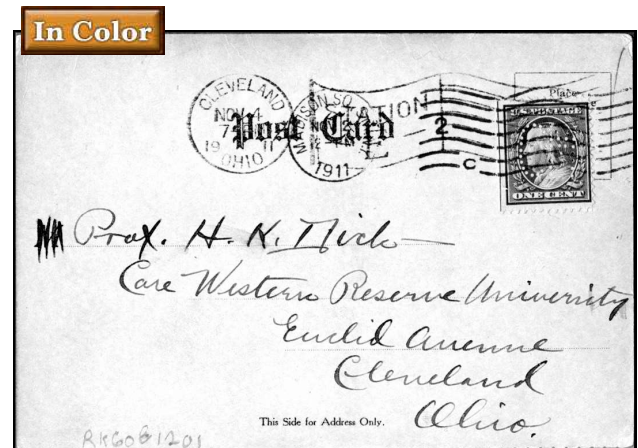 In Color
CLEVELAND
NOV 4
1911
OHIO
MADISON SQ. STATION
1911
2
C
Post Card
Place
U.S. POSTAGE
ONE CENT
Prof. H. K.
Care Western Reserve University
Euclid Avenue
Cleveland
Ohio.
This Side for Address Only.